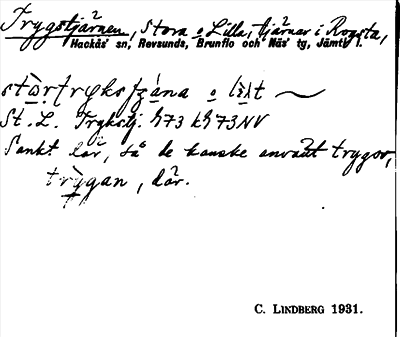 Trygstjärnen, Stora o Lilla, tjärnar i Rogsta,
Hackås sn, Revsunds, Brunflo och Näs tg, Jämtl l.
o
St. L. Trykstj. h73 kh73NV
Sankt där, så de kanske använt trygor,
trygan, där.
C. LINDBERG 1931.